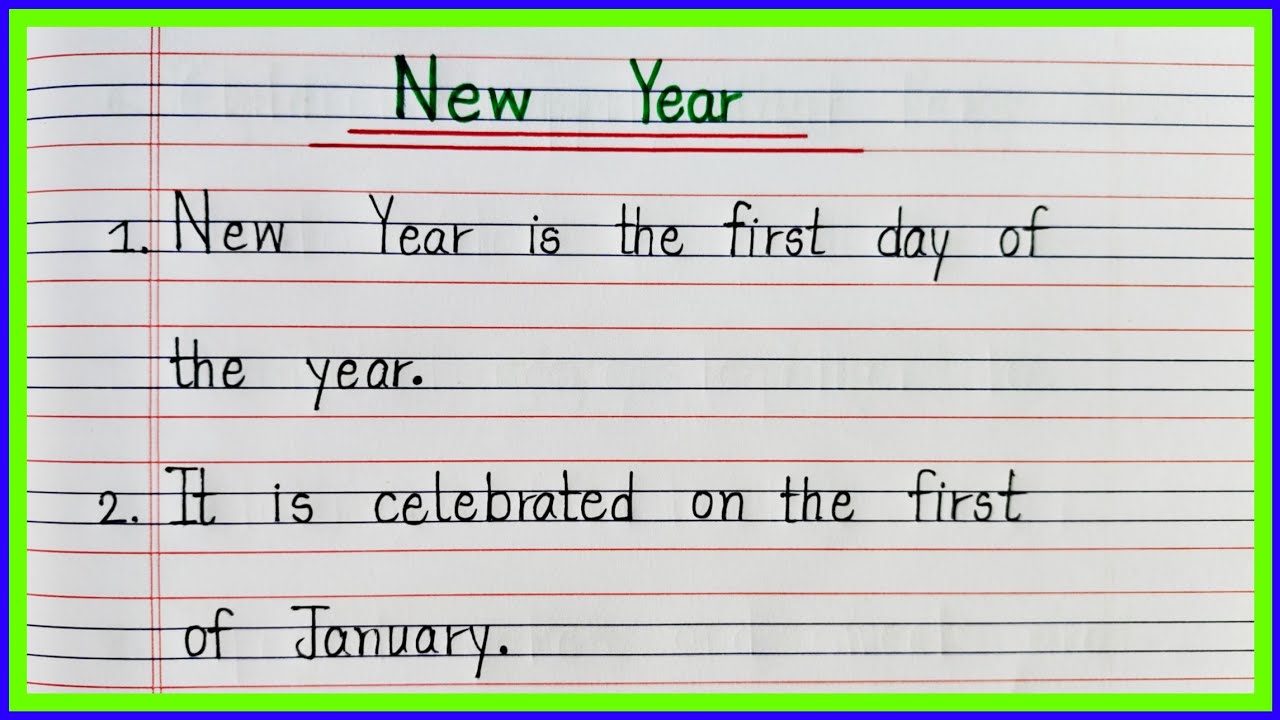 New Year
1. New Year is the first day of
the year.
2. It is celebrated on the first
of January.